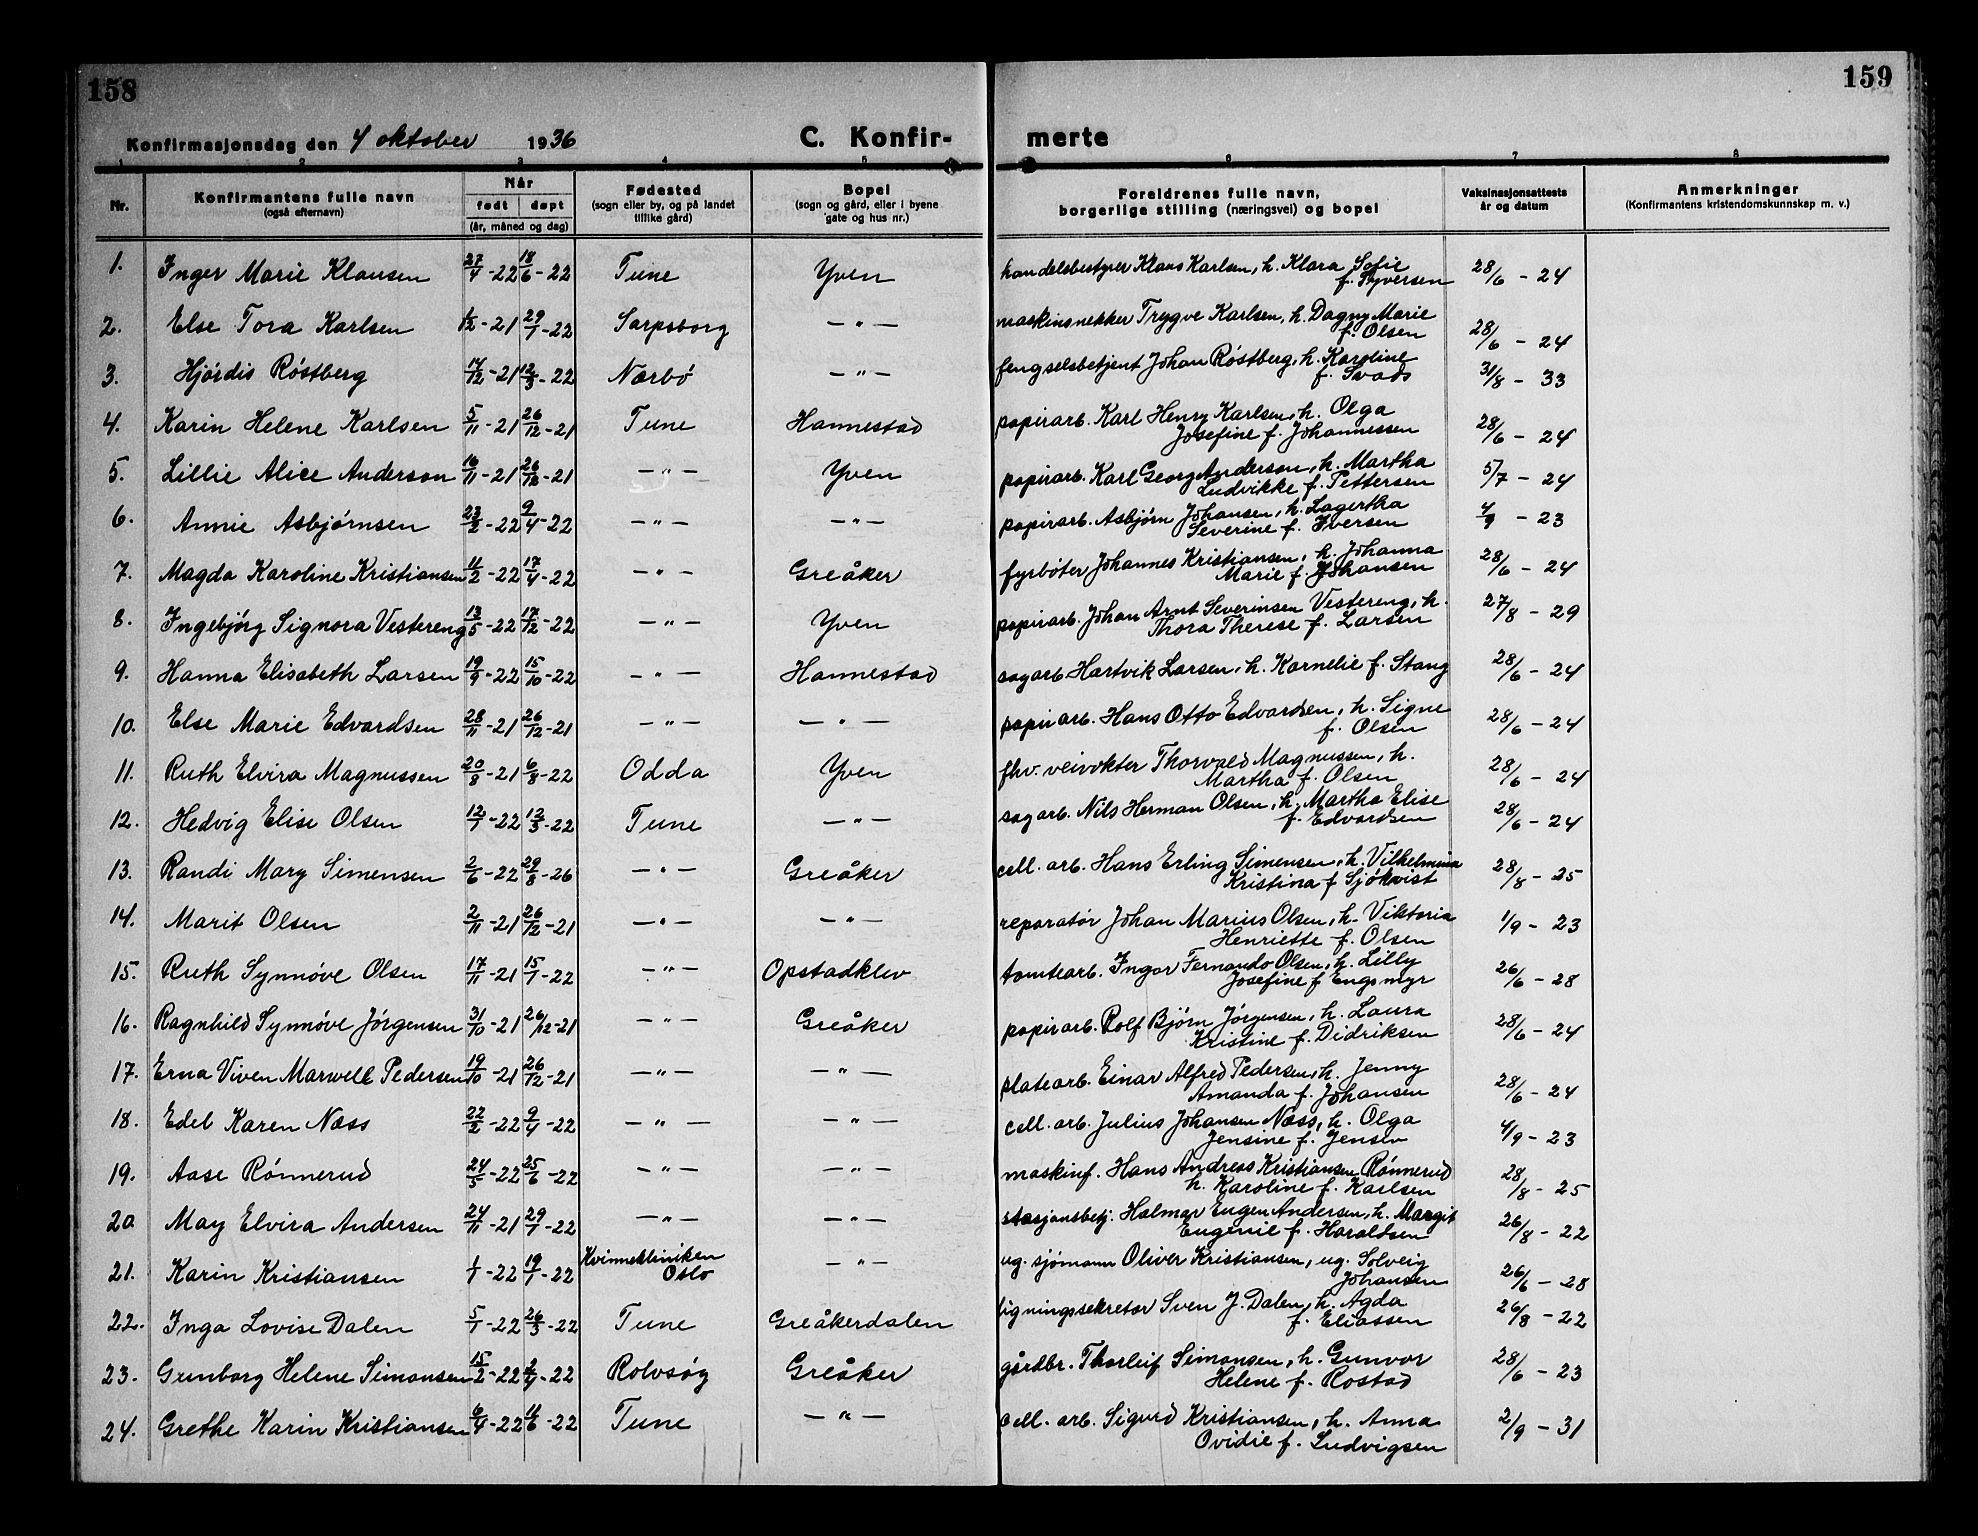 158
159
Konfirmasjonsdag den 4 oktober 1936
C. Konfir-
merte
1 2 3 4 5 6 7 8
Nr.
Konfirmantens fulle navn
(også efternavn)
Når
født døpt
(år, måned og dag)
Fødested
(sogn eller by, og på landet
tillike gård)
Bopel
(sogn og gård, eller i byene
gate og hus nr.)
Foreldrenes fulle navn,
borgerlige stilling (næringsvei) og bopel
Vaksinasjonsattests
år og datum
Anmerkninger
(Konfirmantens kristendomskunnskap m. v.)
1. Inger Marie Klausen 27/4-22 18/6-22 Tune Yven handelsbestyrer Klaus Karlsen, h. Klara Sofie
f. Syversen 28/6 - 24
2. Else Tora Karlsen 1/12-21 29/1-22 Sarpsborg —"— maskinsnekker Trygve Karlsen, h. Dagny Marie
f. Olsen 28/6 - 24
3. Hjördis Röstberg 14/12-21 12/3-22 Nærbö —"— fengselsbetjent Johan Röstberg, h. Karoline
f. Svads 31/8 - 33
4. Karin Helene Karlsen 5/11-21 26/12-21 Tune Hannestad papirarb. Karl Henry Karlsen, h. Olga
Josefine f. Johannessen 28/6 - 24
5. Lillie Alice Anderson 16/11-21 26/12-21 —"— Yven papirarb. Karl Georg Anderson, h. Martha
Ludvikke f. Pettersen 5/7 - 24
6. Annie Asbjørnsen 23/2-22 9/4-22 —"— —"— papirarb. Asbjørn Johansen, h. Lagertha
Severine f. Iversen 4/9 - 23
7. Magda Karoline Kristiansen 11/2-22 17/4-22 —"— Greåker fyrbøter Johannes Kristiansen, h. Johanna
Marie f. Johansen 28/6 - 24
8. Ingebjörg Signora Vestereng 13/5-22 17/12-22 —"— Yven papirarb. Johan Arnt Severinsen Vestereng, h.
Thora Therese f. Larsen 27/8 - 29
9. Hanna Elisabeth Larsen 19/9-22 15/10-22 —"— Hannestad sagarb Hartvik Larsen, h. Kornelie f. Stang 28/6 - 24
10. Else Marie Edvardsen 28/11-21 26/12-21 —"— —"— papirarb. Hans Otto Edvardsen, h. Signe
f. Olsen 28/6 - 24
11. Ruth Elvira Magnussen 20/8-21 6/8-22 Odda Yven fhv. veivokter Thorvald Magnussen, h.
Martha f. Olsen 28/6 - 24
12. Hedvig Elise Olsen 12/1-22 12/3-22 Tune —"— sagarb. Nils Herman Olsen, h. Martha Elise
f. Edvardsen 28/6 - 24
13. Randi Mary Simensen 2/6-22 29/8-26 —"— Greåker cell. arb. Hans Erling Simensen, h. Vilhelmina
Kristina f Sjökvist 28/8 - 25
14. Marit Olsen 2/11-21 26/12-21 —"— —"— reparatör Johan Marius Olsen, h. Viktoria
Henriette f. Olsen 1/9 - 23
15. Ruth Synnöve Olsen 17/11-21 15/1-22 —"— Opstadklev tomtearb. Ingar Fernando Olsen, h. Lilly
Josefine f Engsmyr 26/6 - 28
16. Ragnhild Synnöve Jörgensen 31/10-21 26/12-21 —"— Greåker papirarb. Rolf Bjørn Jörgensen, h. Laura
Kristine f. Didriksen 28/6 - 24
17. Erna Viven Marwell Pedersen 19/10-21 26/12-21 —"— —"— platearb. Einar Alfred Pedersen, h. Jenny
Amanda f. Johansen 28/6 - 24
18. Edel Karen Næss 22/2-22 9/4-22 —"— —"— cell. arb. Julius Johansen Næss, h. Olga
Jensine f. Jensen 4/9 - 23
19. Aase Rönnerud 24/5-22 25/6-22 —"— —"— maskinf. Hans Andreas Kristiansen Rönnerud
h. Karoline f. Karlsen 28/8 - 25
20 May Elvira Andersen 24/11-21 29/1-22 —"— —"— stasjonsbetj. Halmar Eugen Andersen, h. Margit
Eugenie f. Haraldsen 26/8 - 22
21. Karin Kristiansen 1/1-22 19/1-22 Kvinneklinikken
Oslo —"— ug. sjømann Oliver Kristiansen, ug. Solveig
Johansen 26/6 - 28
22. Inga Lovise Dalen 5/1-22 26/3-22 Tune Greåkerdalen ligningssekretær Sven J. Dalen, h. Agda
f. Eliassen 26/8 - 22
23. Gunborg Helene Simonsen 15/2-22 2/4-22 Rolvsøy Greåker gårdbr. Thorleif Simonsen, h. Gunvor
Helene f. Rostad 28/6 - 23
24. Grethe Karin Kristiansen 6/4-22 11/6-22 Tune —"— cell. arb. Sigurd Kristiansen, h. Anna
Ovidie f. Ludvigsen 2/9 - 31